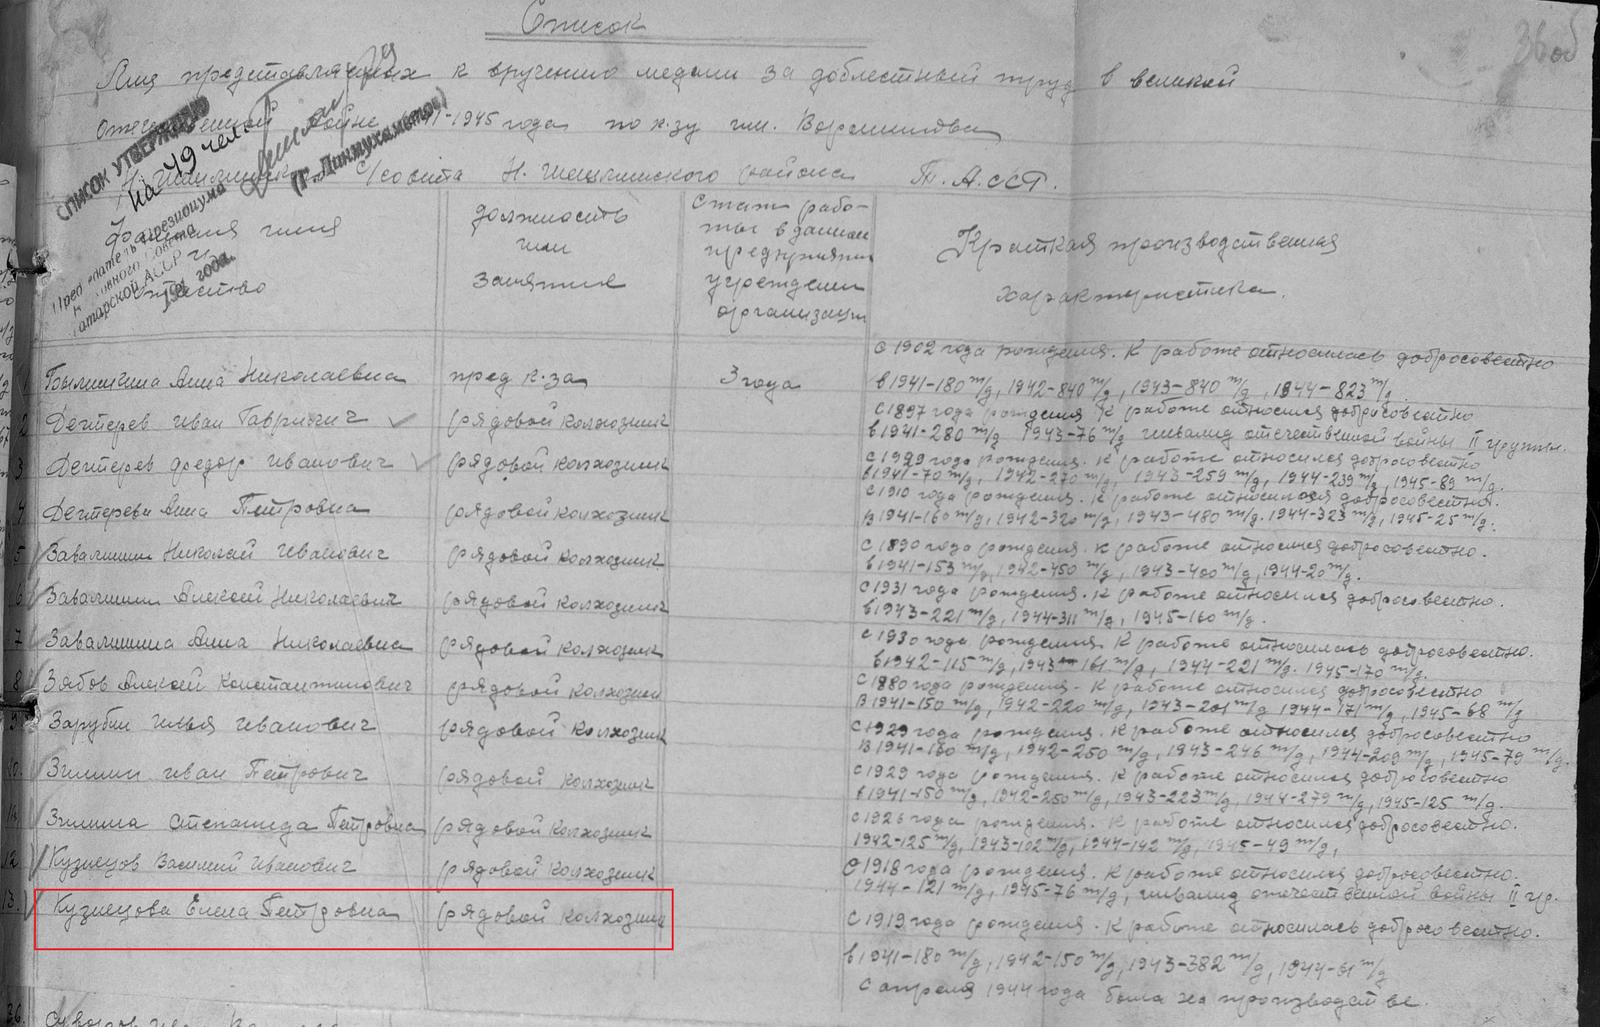 Список
36 об
Лиц представленных к вручению медали за доблестный труд в великой
отечественной войне 1941-1945 года по к-зу им. Ворошилова
С/совета Н. Шешминского района Т.А.ССР.
СПИСОК УТВЕРЖДЕНО
на 49 чел.
(Г. Динмухаметов)
Председатель Президиума
Верховного Совета
Татарской АССР
194 года.
Фамилия имя
и
отчество
должность
или
занятие
Стаж рабо-
ты в данном
предприятии
учреждении
организации
Краткая производственная
характеристика.
С 1902 года рождения. К работе относилась добросовестно
1 Анна Николаевна пред к-за 3 года в 1941-180 т/д, 1942-840 т/д, 1943-840 т/д, 1944-823 т/д.
С 1897 года рождения К работе относился добросовестно
2 Дегтерев Иван рядовой колхозник в 1941-280 т/д 1943-76 т/д инвалид отечественной войны II группы.
С 1929 года рождения. К работе относился добросовестно
3 Дегтерев Федор Иванович рядовой колхозник в 1941-70 т/д, 1942-270 т/д, 1943-259 т/д, 1944-239 т/д, 1945-89 т/д.
С 1910 года рождения. К работе относилася добросовестно.
4 Дегтерева Анна Петровна рядовой колхозник в 1941-160 т/д, 1942-320 т/д, 1943-480 т/д. 1944-323 т/д, 1945-25 т/д.
С 1890 года рождения. К работе относился добросовестно.
5 Завалишин Николай Иванович рядовой колхозник в 1941-153 т/д, 1942-450 т/д, 1943-400 т/д, 1944-20 т/д.
С 1931 года рождения. К работе относился добросовестно.
6 Завалишин Алексей Николаевич рядовой колхозник в 1943-221 т/д, 1944-311 т/д, 1945-160 т/д.
С 1930 года рождения. К работе относилась добросовестно.
7 Завалишина Анна Николаевна рядовой колхозник в 1942-115 т/д, 1943-161 т/д, 1944-221 т/д. 1945-170 т/д.
С 1880 года рождения. К работе относился добросовестно
8 Зябов Алексей Константинович рядовой колхозник В 1941-150 т/д, 1942-220 т/д, 1943-201 т/д 1944-171 т/д, 1945-68 т/д
С 1929 года рождения. К работе относился добросовестно
9. Зарубин Илья Иванович рядовой колхозник В 1941-160 т/д, 1942-250 т/д, 1943-246 т/д, 1944-209 т/д, 1945-79 т/д.
С 1929 года рождения. К работе относился добросовестно
10. Зимин Иван Петрович рядовой колхозник в 1941-150 т/д, 1942-250 т/д, 1943-223 т/д, 1944-279 т/д, 1945-125 т/д.
С 1926 года рождения. К работе относился добросовестно.
11. Зимина Степанида Петровна рядовой колхозник 1942-125 т/д, 1943-102 т/д, 1944-142 т/д, 1945-49 т/д,
С 1918 года рождения. К работе относился добросовестно.
12. Кузнецов Василий Иванович рядовой колхозник 1944-121 т/д, 1945-76 т/д, инвалид отечественной войны II гр.
13. Кузнецова Елена Петровна рядовой колхозник С 1919 года рождения. К работе относилась добросовестно.
в 1941-180 т/д, 1942-150 т/д, 1943-382 т/д, 1944-61 т/д
С апреля 1944 года была на производстве.
36.